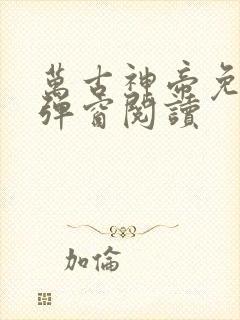 萬古神帝免
彈窗閱讀
加倫